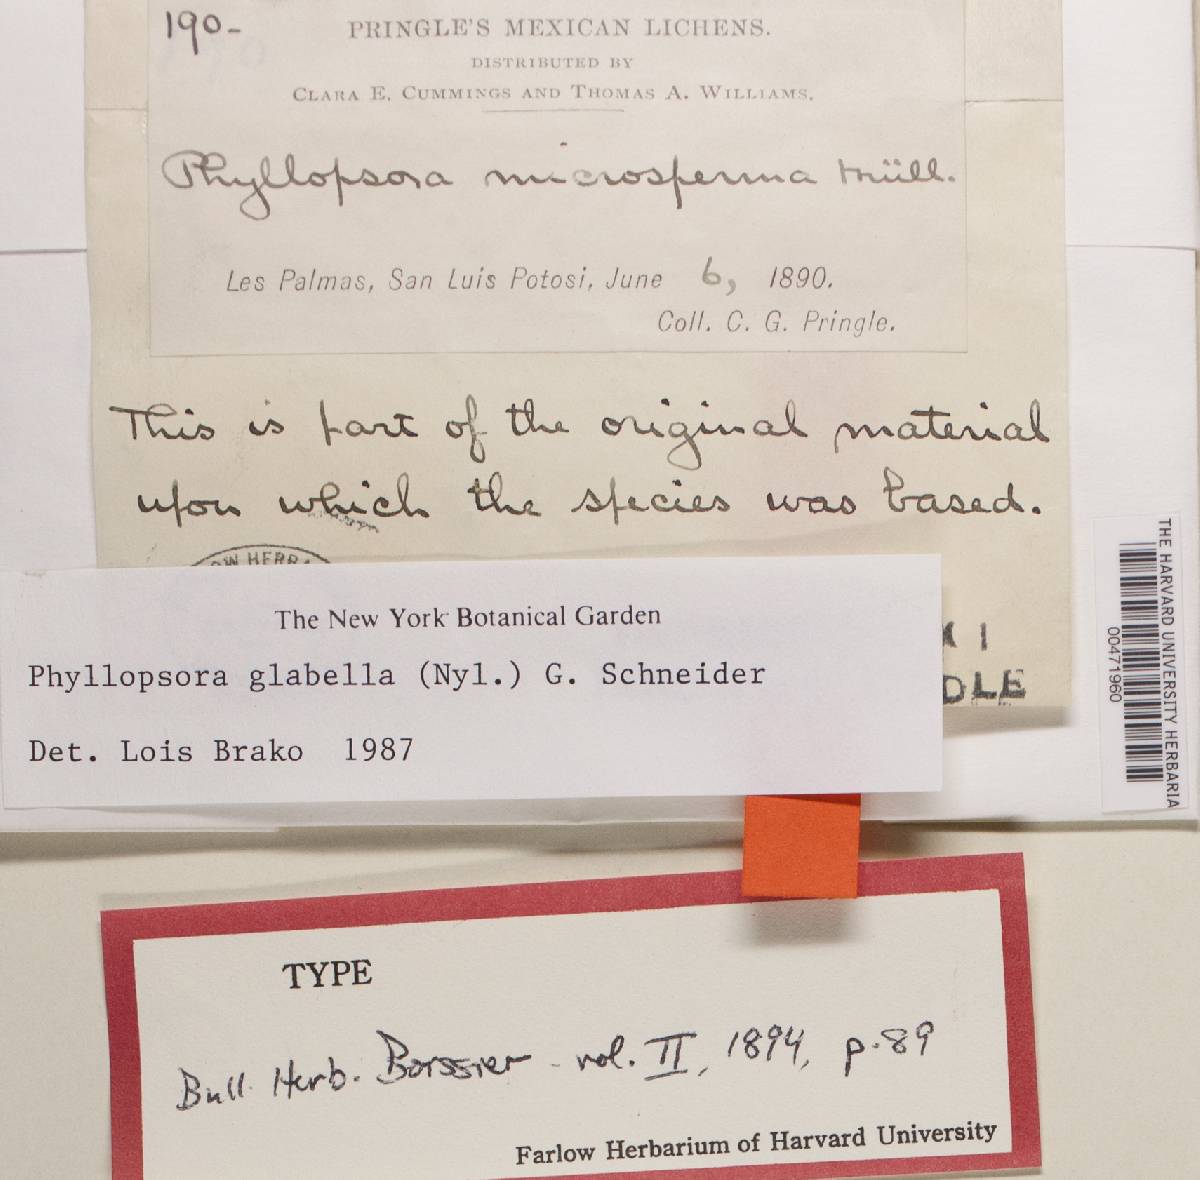 190-
PRINGLE'S MEXICAN LICHENS.
DISTRIBUTED BY
CLARA E. CUMMINGS AND THOMAS A. WILLIAMS.
Phyllopsora microsperma Müll.
Les Palmas, San Luis Potosi, June 6, 1890.
Coll. C. G. Pringle.
This is part of the original material
upon which the species was based.
OW HERB
The New York Botanical Garden
Phyllopsora glabella (Nyl.) G. Schneider
Det. Lois Brako 1987
DLE
THE HARVARD UNIVERSITY HERBARIA
00471960
TYPE
Bull. Herb. Boissier - vol. II, 1894, p. 89
Farlow Herbarium of Harvard University